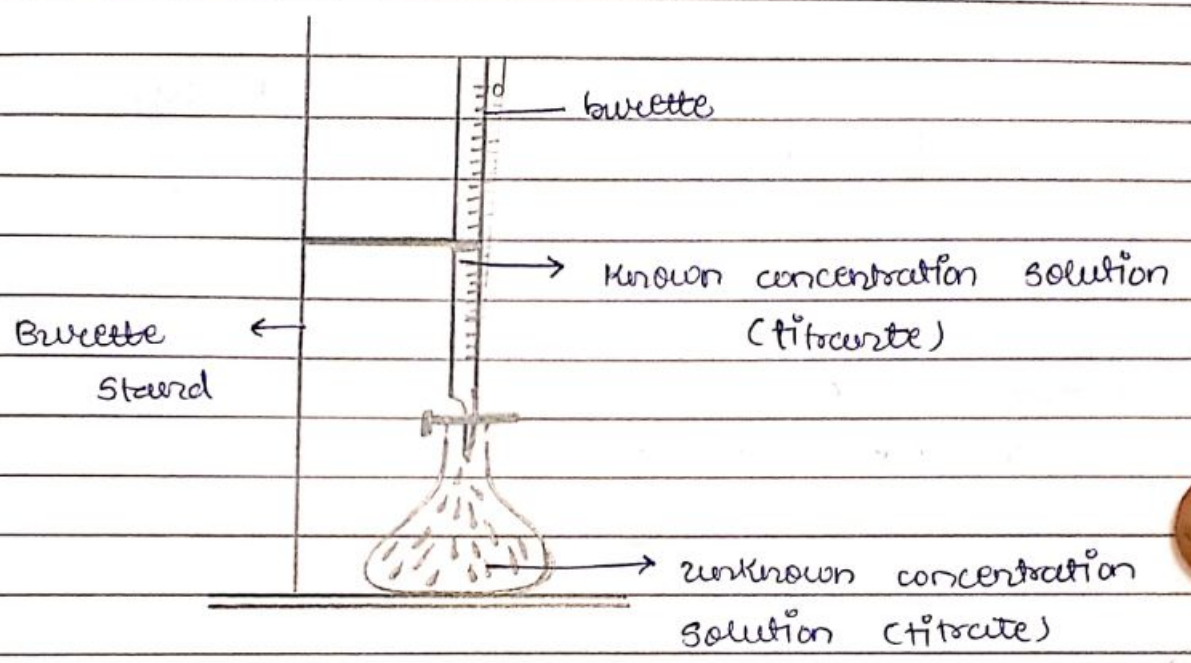 burette
Known concentration solution
(titrante)
Burette
Stand
unknown concentration
solution (titrate)